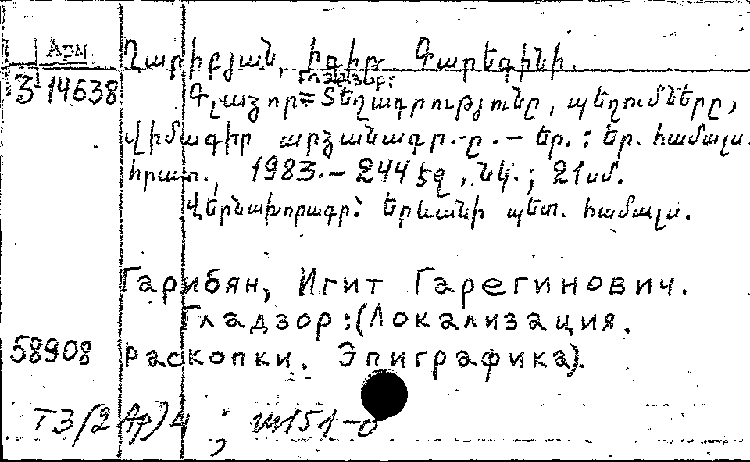 Арм
Ղարիբյան, Իգիթ Գարեգինի.
З-14638
Գլաձոր= Տեղագրությունը, պեղումները,
վիմագիր արձանագր.-ը. – Եր. : Եր. համալս.
հրատ., 1983.– 244 էջ, նկ.; 21սմ.
Վերնախորագր: Երևանի պետ. համալս.
Гарибян, Игит Гарегинович.
Гладзор:(Локализация,
58908 раскопки. Эпиграфика).
Т3(2Ар)4 ;